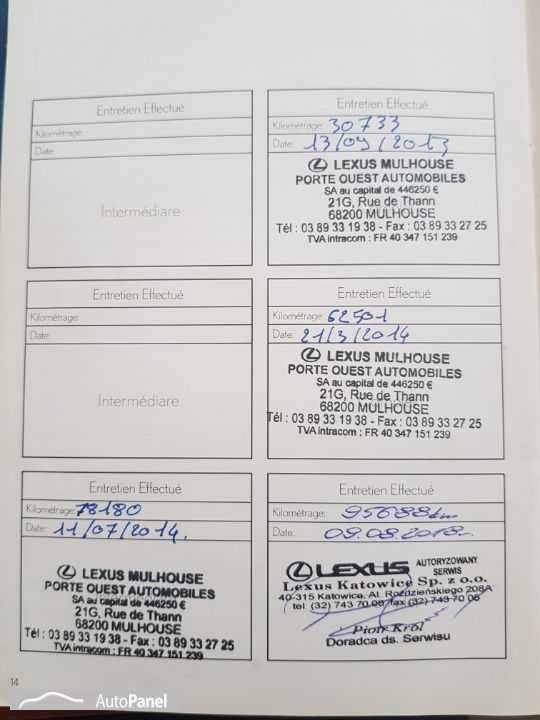 Entretien Effectué
Kilométrage:
Date:
Intermédiare
Entretien Effectué
Kilométrage: 30733
Date: 13/09/2013
LEXUS MULHOUSE
PORTE OUEST AUTOMOBILES
SA au capital de 446250 €
21G, Rue de Thann
68200 MULHOUSE
Tél : 03 89 33 19 38 - Fax : 03 89 33 27 25
TVA intracom : FR 40 347 151 239
Entretien Effectué
Kilométrage:
Date:
Intermédiare
Entretien Effectué
Kilométrage: 62501
Date: 21/3/2014
LEXUS MULHOUSE
PORTE OUEST AUTOMOBILES
SA au capital de 446250 €
21G, Rue de Thann
68200 MULHOUSE
Tél : 03 89 33 19 38 - Fax : 03 89 33 27 25
TVA intracom : FR 40 347 151 239
Entretien Effectué
Kilométrage: 78180
Date: 11/07/2014.
LEXUS MULHOUSE
PORTE OUEST AUTOMOBILES
SA au capital de 446250 €
21G, Rue de Thann
68200 MULHOUSE
Tél : 03 89 33 19 38 - Fax : 03 89 33 27 25
TVA intracom : FR 40 347 151 239
Entretien Effectué
Kilométrage: 95688km
Date: 09.08.2018r.
LEXUS AUTORYZOWANY SERWIS
Lexus Katowice Sp. z o.o.
40-315 Katowice, Al. Roździeńskiego 208A
tel. (32) 743 70 00 fax (32) 743 70 06
Piotr Król
Doradca ds. Serwisu
14
AutoPanel